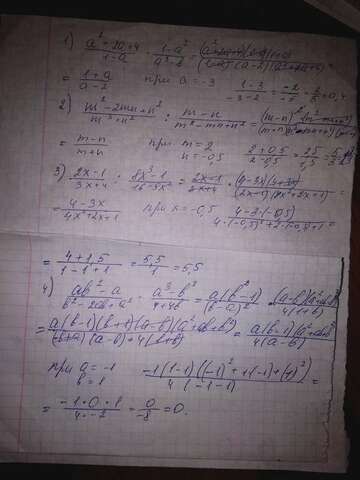 1) (a²+2a+4)/(1-a) · (1-a²)/(a³-8) = ((a²+2a+4)(1-a)(1+a))/((1-a)(a-2)(a²+2a+4)) =
= (1+a)/(a-2) при a=-3 (1-3)/(-3-2) = (-2)/(-5) = 2/5 = 0,4
2) (m²-2mn+n²)/(m³+n³) : (m-n)/(m²-mn+n²) = ((m-n)²(m²-mn+n²))/((m+n)(m²-mn+n²)(m-n)) =
= (m-n)/(m+n) при m=2 (2+0,5)/(2-0,5) = 2,5/1,5 = 5/3
n=-0,5
3) (2x-1)/(3x+4) : (8x³-1)/(16-9x²) = (2x-1)/(3x+4) · ((4-3x)(4+3x))/((2x-1)(4x²+2x+1)) =
= (4-3x)/(4x²+2x+1) при x=-0,5 (4-3·(-0,5))/(4·(-0,5)²+2·(-0,5)+1) =
= (4+1,5)/(1-1+1) = 5,5/1 = 5,5
4) (ab²-a)/(b²-2ab+a²) · (a³-b³)/(4+4b) = (a(b²-1))/((b-a)²) · ((a-b)(a²+ab+b²))/(4(1+b))
= (a(b-1)(b+1)(a-b)(a²+ab+b²))/((b-a)(a-b)+4(b+b)) = (a(b-1)(a²+ab+b²))/(4(a-b))
при a=-1 (-1(1-1)((-1)²+1(-1)+(1)²))/(4(-1-1)) =
b=1
= (-1·0·1)/(4·-2) = 0/(-8) = 0.